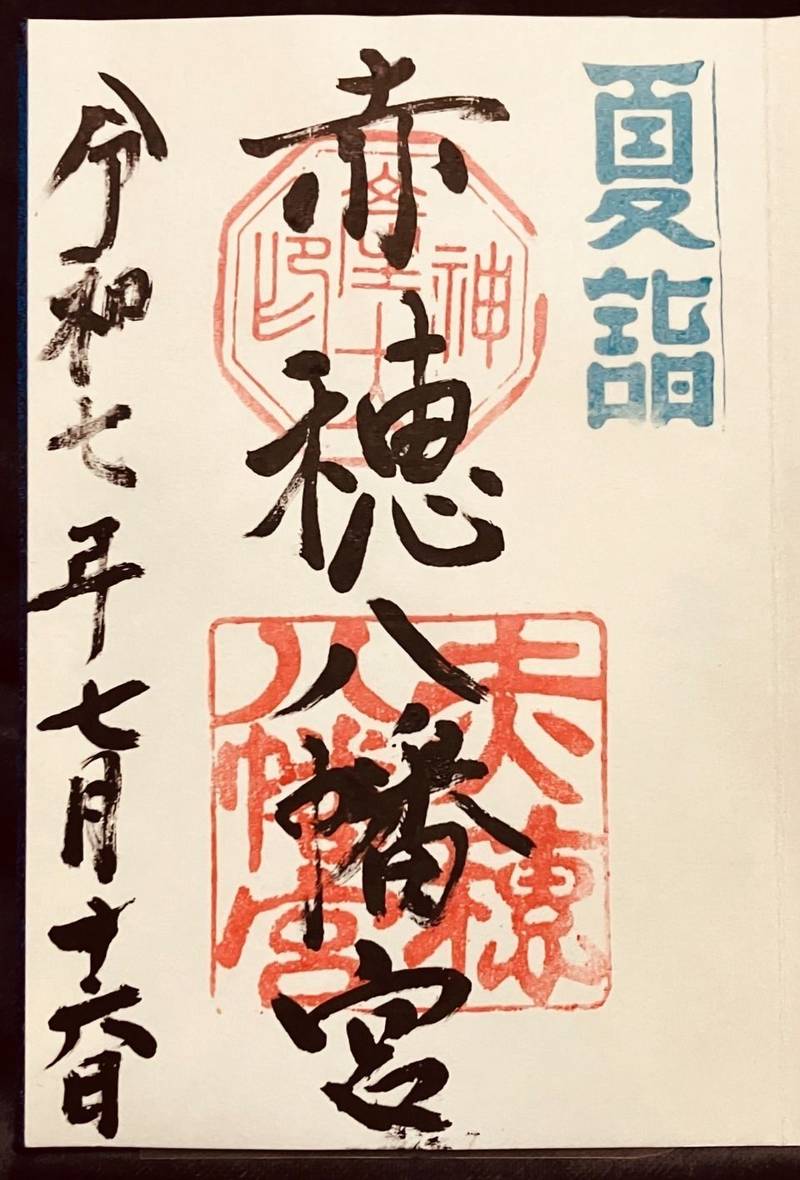 夏詣
赤穂八幡宮
赤穂
八幡宮
令和七年七月十六日